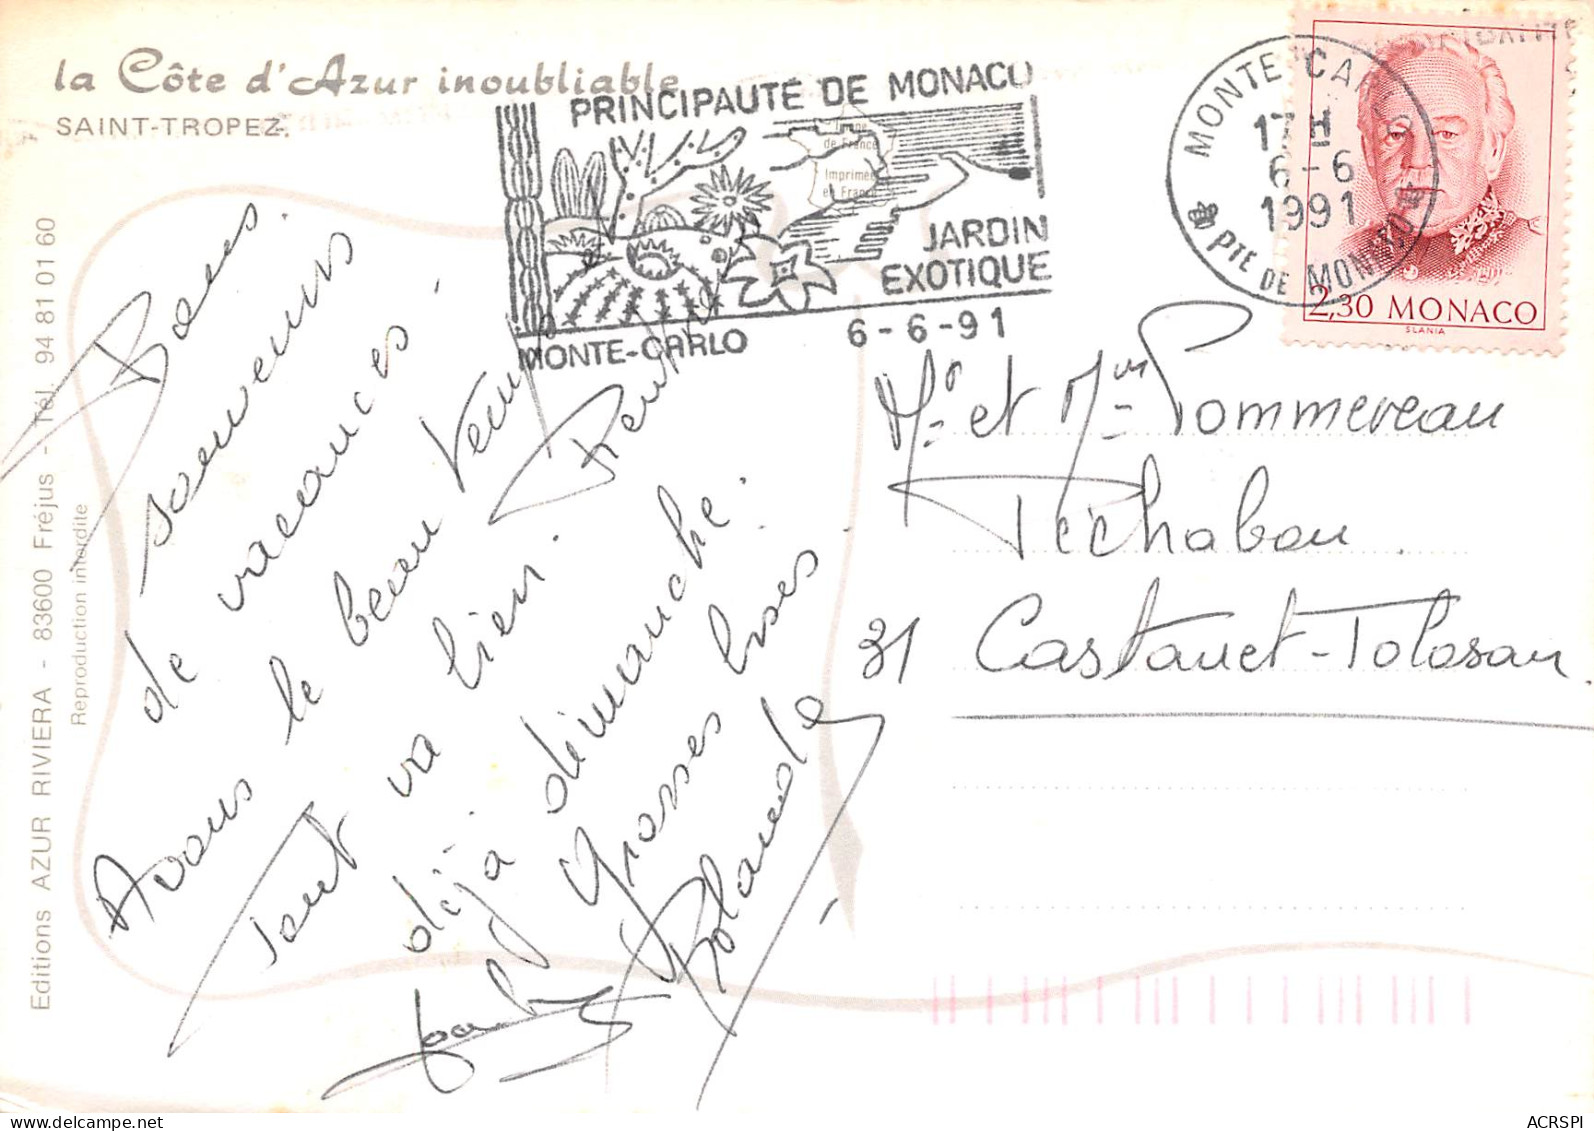 la Côte d'Azur inoubliable
SAINT-TROPEZ.
PRINCIPAUTÉ DE MONACO
JARDIN
EXOTIQUE
MONTE-CARLO
6-6-91
Imprimé
en France
MONTE CARLO
17H
6-6
1991
PTE DE MONACO
2,30 MONACO
SLANIA
Editions AZUR RIVIERA - 83600 Fréjus - Tél. 94 81 01 60
Reproduction interdite
Bons
souvenirs
de vacances.
Avons le beau temps
Tout va bien. Rentrée
déjà dimanche.
Grosses bises
Rolande
Mr et Mme Pommereau
Péchabou.
31 Castanet-Tolosan.
ACRSPI